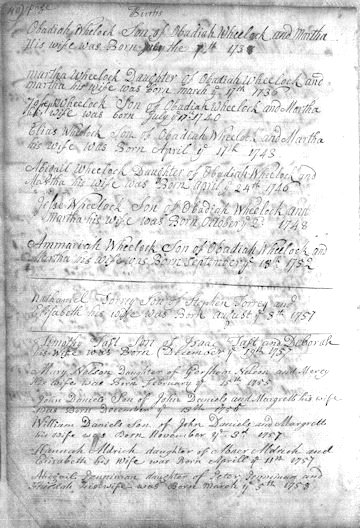 Births
Obadiah Whelock Son of Obadiah Wheelock and Martha
His wife was Born the
martha Wheelock Daughter of Obadiah Wheelock and
martha his wife was born march ye 17th 1736
Wheelock Son of Obadiah Wheelock and Martha
his wife was born July ye 1740
Elias Wheelock Son of Obadiah Wheelock and Martha
his wife was Born April ye 17th 1743
Abigail Wheelock Daughter of Obadiah Wheelock and
Martha his wife was Born April ye 24th 1746
Wheelock Son of Obadiah Wheelock and
Martha his wife was Born October ye 1748
Ammariah Wheelock Son of Obadiah Wheelock and
Martha his wife was Born September ye 18th 1752
Nathaniel Torrey Son of Stephen Torrey and
Elizabeth his wife was Born august ye 3th 1757
Timothy Taft Son of Isaac Taft and Deborah
his wife was Born December ye 19th 1757
Mercy Nelson Daughter of Gershom Nelson and Mercy
his wife was Born February ye 1755
John Daniels Son of John Daniels and Margrett his wife
was Born December ye 18th 1756
William Daniels son of John Daniels and Margrett
his wife was Born November ye 3d 1757
Hannah Aldrich daughter of Abner Aldrich and
Elizabeth his wife was Born Aprill ye 11th 1757
Abigail Penniman daughter of Peter Penniman and
his wife was Born March ye 5th 1753